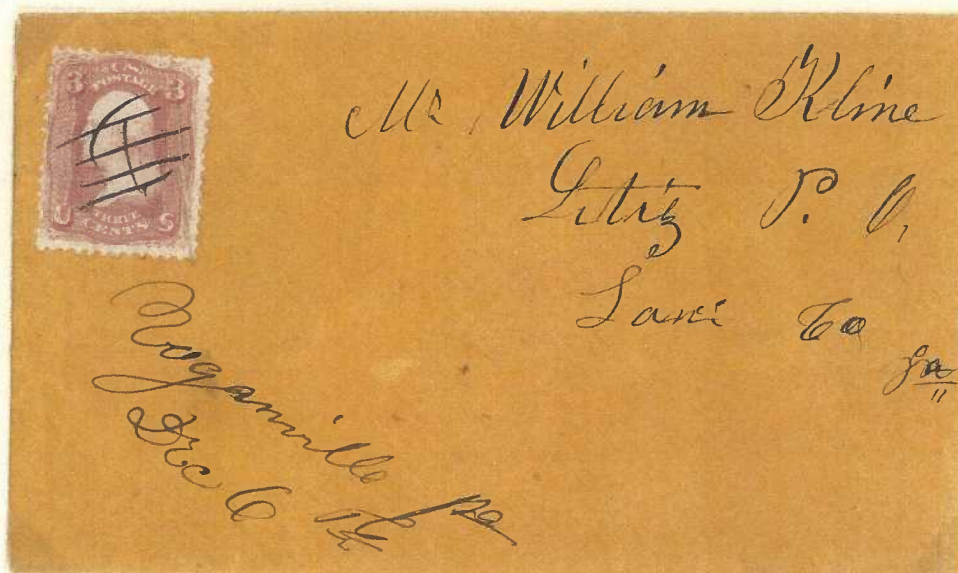 3 3
U.S. POSTAGE
THREE
CENTS
U S
Mr. William Kline
Litiz P. O,
Lanc Co
Pa
Voganville Pa
Dec 6 Th